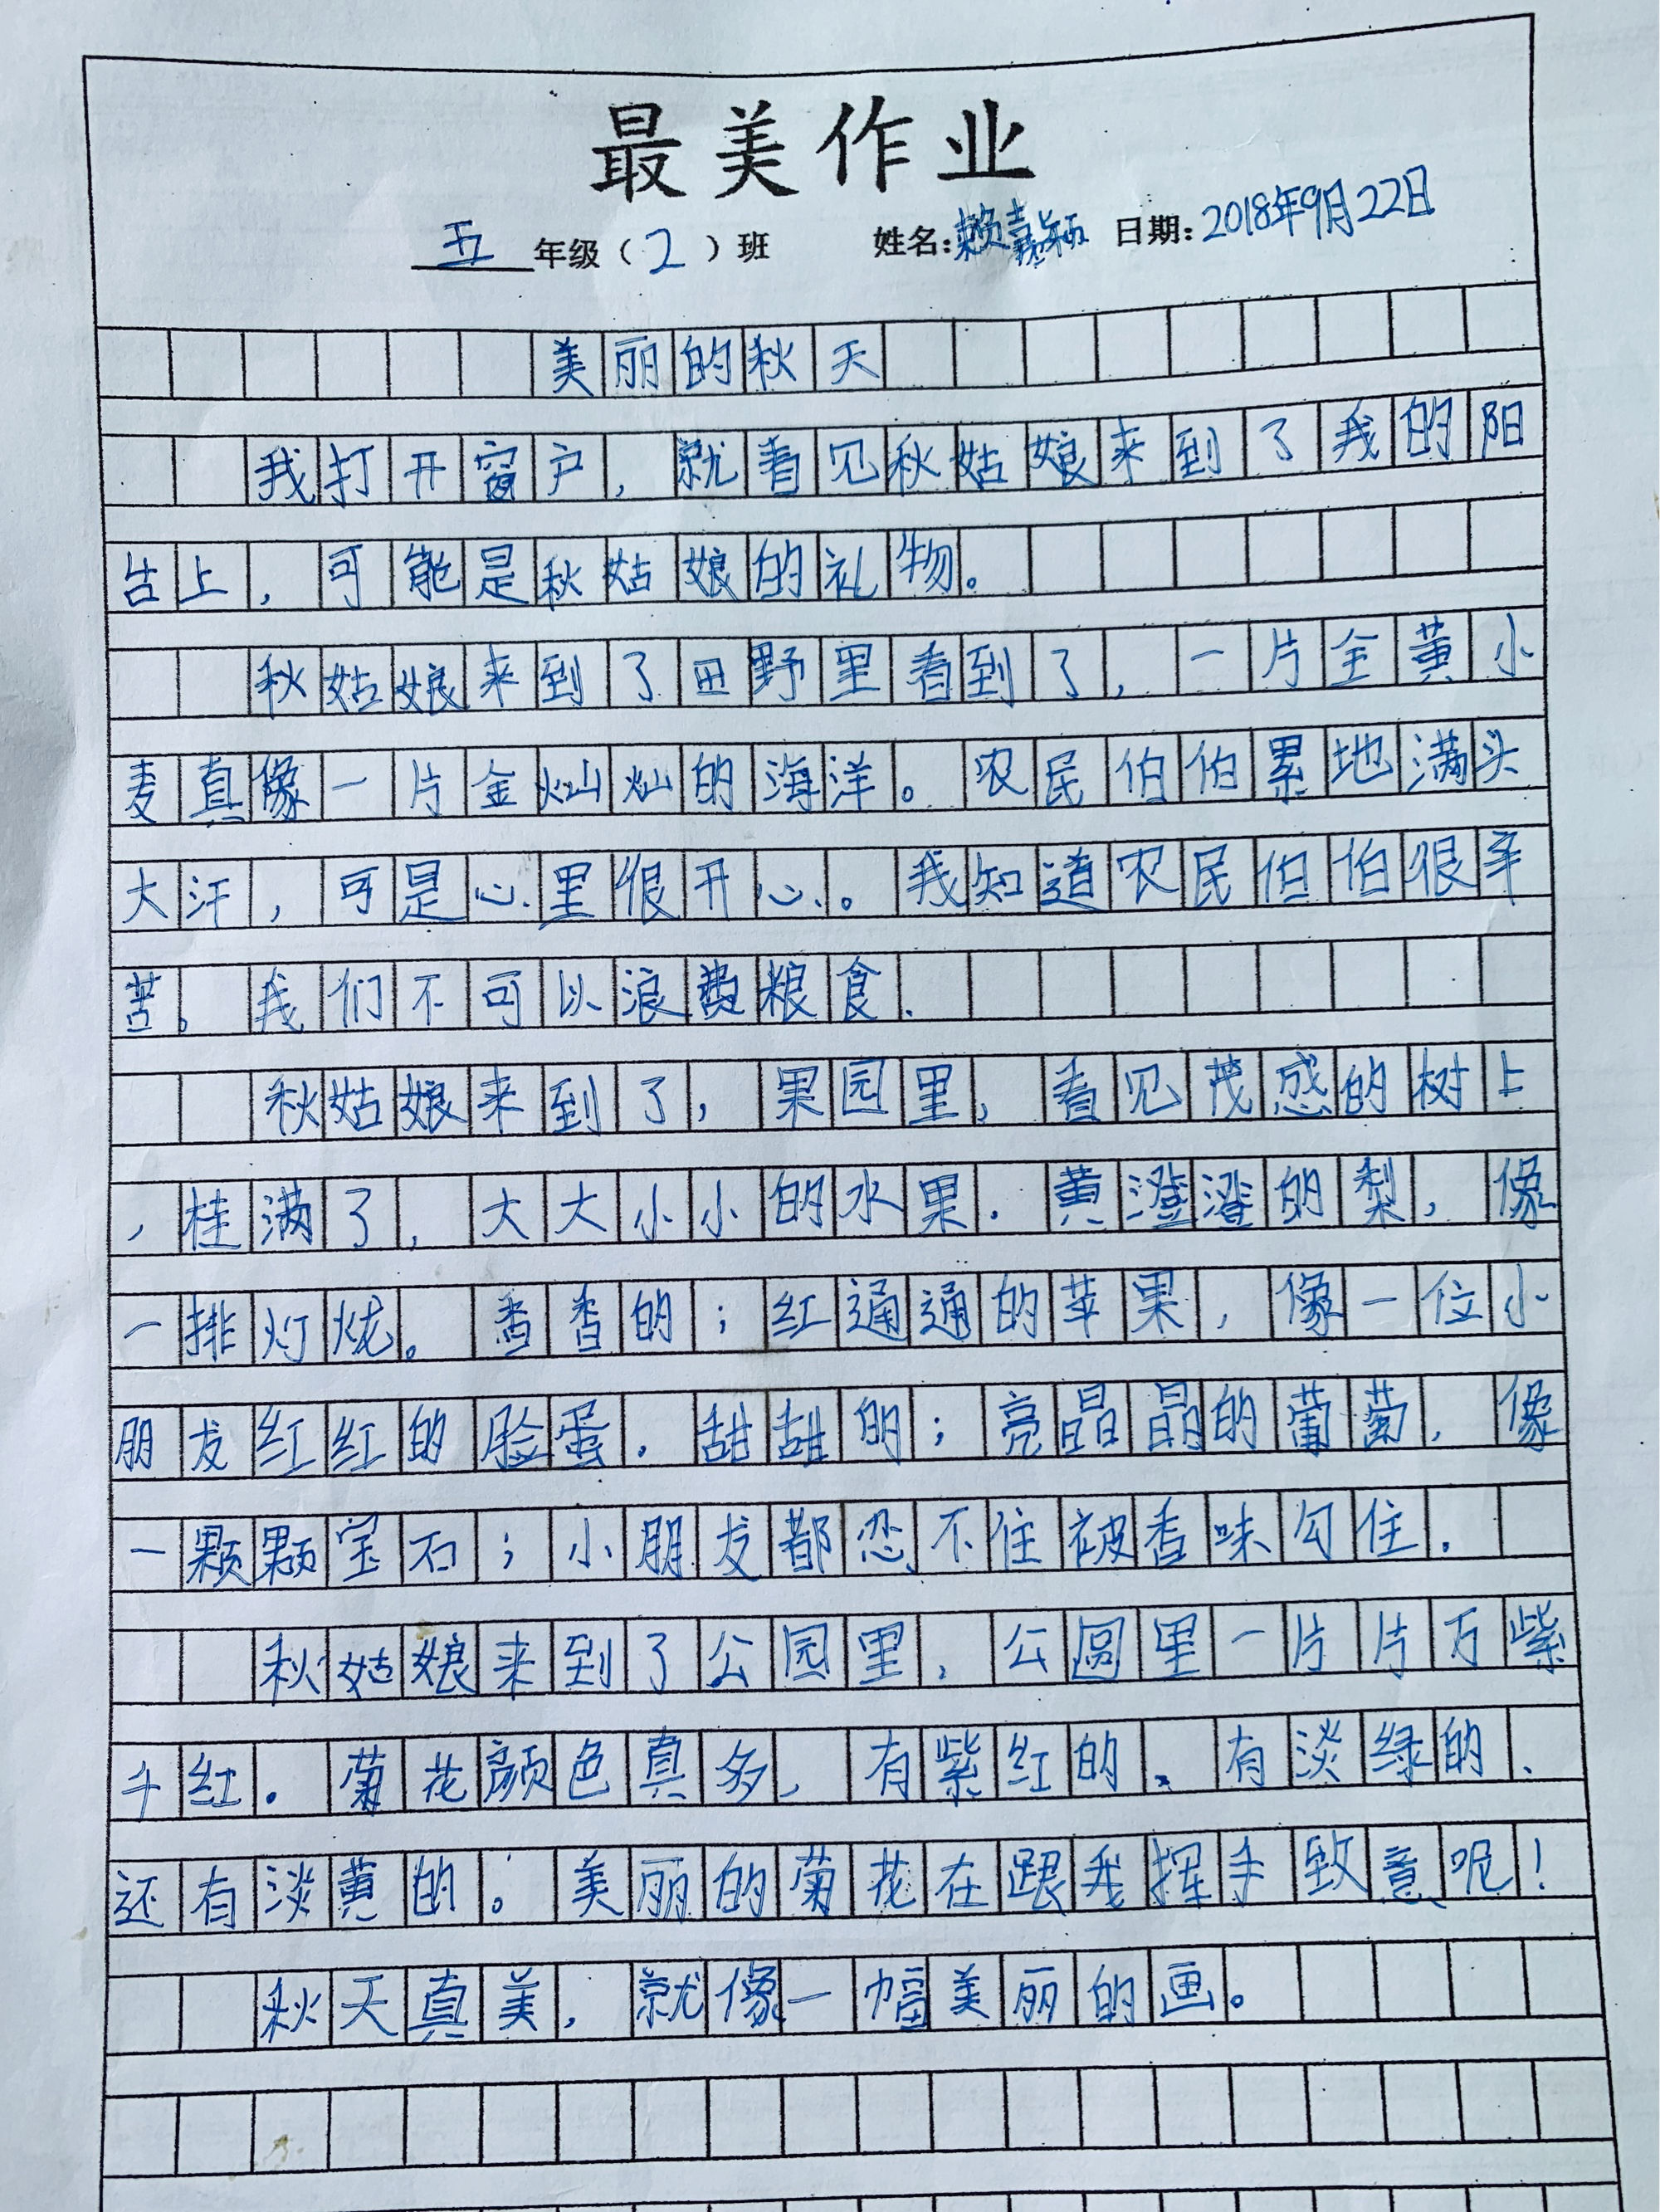 最美作业
五年级（2）班 姓名：赖嘉颖 日期：2018年9月22日
美丽的秋天
我打开窗户，就看见秋姑娘来到了我的阳
台上，可能是秋姑娘的礼物。
秋姑娘来到了田野里看到了，一片金黄小
麦真像一片金灿灿的海洋。农民伯伯累地满头
大汗，可是心里很开心。我知道农民伯伯很辛
苦。我们不可以浪费粮食.
秋姑娘来到了，果园里，看见茂盛的树上
，桂满了，大大小小的水果.黄澄澄的梨，像
一排灯炷。香香的；红通通的苹果，像一位小
朋友红红的脸蛋.甜甜的；亮晶晶的葡萄，像
一颗颗宝石；小朋友都忍不住被香味勾住.
秋姑娘来到了公园里，公圆里一片片万紫
千红.菊花颜色真多，有紫红的、有淡绿的、
还有淡黄的。美丽的菊花在跟我挥手致意呢！
秋天真美，就像一幅美丽的画。